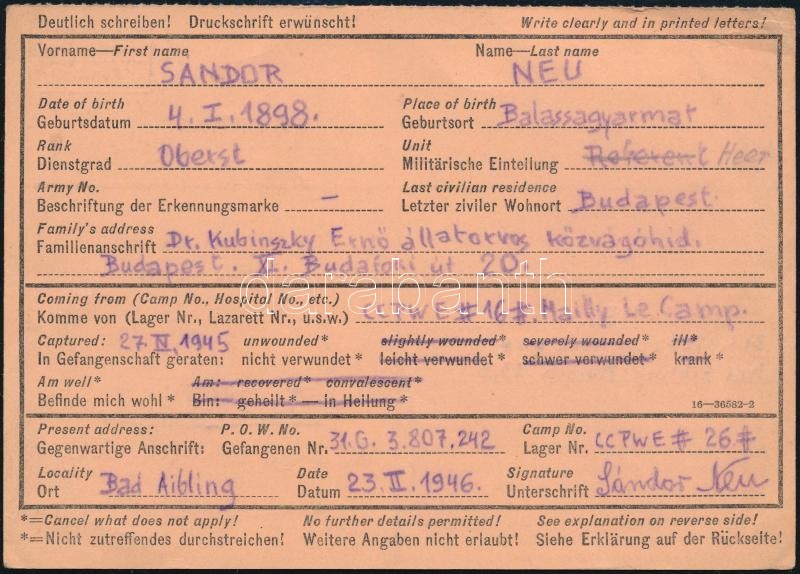 Deutlich schreiben! Druckschrift erwünscht! Write clearly and in printed letters!
Vorname—First name Name—Last name
SANDOR NEU
Date of birth Place of birth
Geburtsdatum 4. I. 1898. Geburtsort Balassagyarmat
Rank Unit
Dienstgrad Oberst Militärische Einteilung Referent Heer
Army No. Last civilian residence
Beschriftung der Erkennungsmarke — Letzter ziviler Wohnort Budapest.
Family's address
Familienanschrift Dr. Kubinszky Ernő állatorvos közvágóhid.
Budapest. XI. Budafoki út 20.
darabanth
Coming from (Camp No., Hospital No., etc.)
Komme von (Lager Nr., Lazarett Nr., u.s.w.) CCPWE # 16 #. Mailly Le Camp.
Captured: 27.IV.1945 unwounded* slightly wounded* severely wounded* ill*
In Gefangenschaft geraten: nicht verwundet* leicht verwundet* schwer verwundet* krank*
Am well* Am: recovered* convalescent*
Befinde mich wohl* Bin: geheilt* — in Heilung* 16—36582-2
Present address: P.O.W. No. Camp No.
Gegenwartige Anschrift: Gefangenen Nr. 31.G. 3.807,242 Lager Nr. CCPWE # 26 #
Locality Date Signature
Ort Bad Aibling Datum 23.II.1946. Unterschrift Sándor Neu
*=Cancel what does not apply! No further details permitted! See explanation on reverse side!
*=Nicht zutreffendes durchstreichen! Weitere Angaben nicht erlaubt! Siehe Erklärung auf der Rückseite!